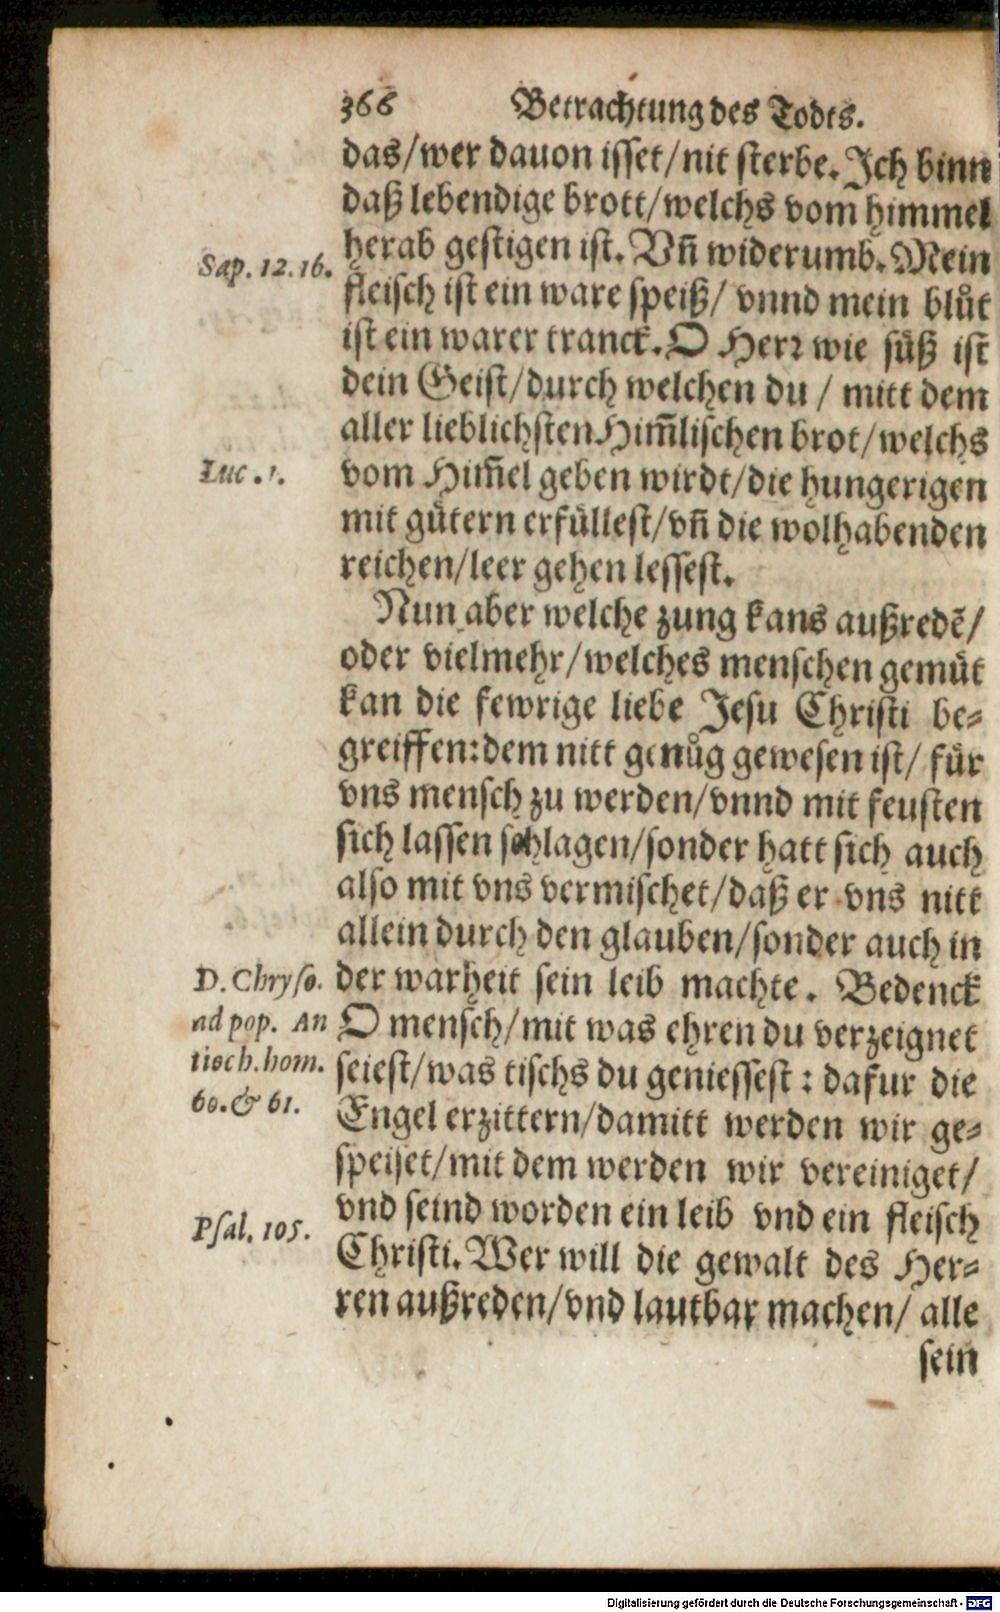 366 Betrachtung des Todts.
das/wer dauon isset/nit sterbe. Ich binn
daß lebendige brott/welchs vom himmel
herab gestigen ist. Vñ widerumb. Mein
fleisch ist ein ware speiß/ vnnd mein blůt
ist ein warer tranck. O Herꝛ wie süß ist
dein Geist/durch welchen du / mitt dem
aller lieblichsten Him̃lischen brot/welchs
vom Him̃el geben wirdt/die hungerigen
mit gütern erfüllest/vñ die wolhabenden
reichen/leer gehen lessest.
Nun aber welche zung kans außredẽ/
oder vielmehr/welches menschen gemüt
kan die fewrige liebe Jesu Christi be-
greiffen: dem nitt genůg gewesen ist/ für
vns mensch zu werden/vnnd mit feusten
sich lassen schlagen/sonder hatt sich auch
also mit vns vermischet/daß er vns nitt
allein durch den glauben/sonder auch in
der warheit sein leib machte. Bedenck
O mensch/mit was ehren du verzeignet
seiest/was tischs du geniessest: dafur die
Engel erzittern/damitt werden wir ge-
speiset/mit dem werden wir vereiniget/
vnd seind worden ein leib vnd ein fleisch
Christi. Wer will die gewalt des Her-
ren außreden/vnd lautbar machen/ alle
sein
Sap. 12. 16.
Luc. 1.
D. Chryso.
ad pop. An
tioch. hom.
60. & 61.
Psal. 105.
Digitalisierung gefördert durch die Deutsche Forschungsgemeinschaft - DFG